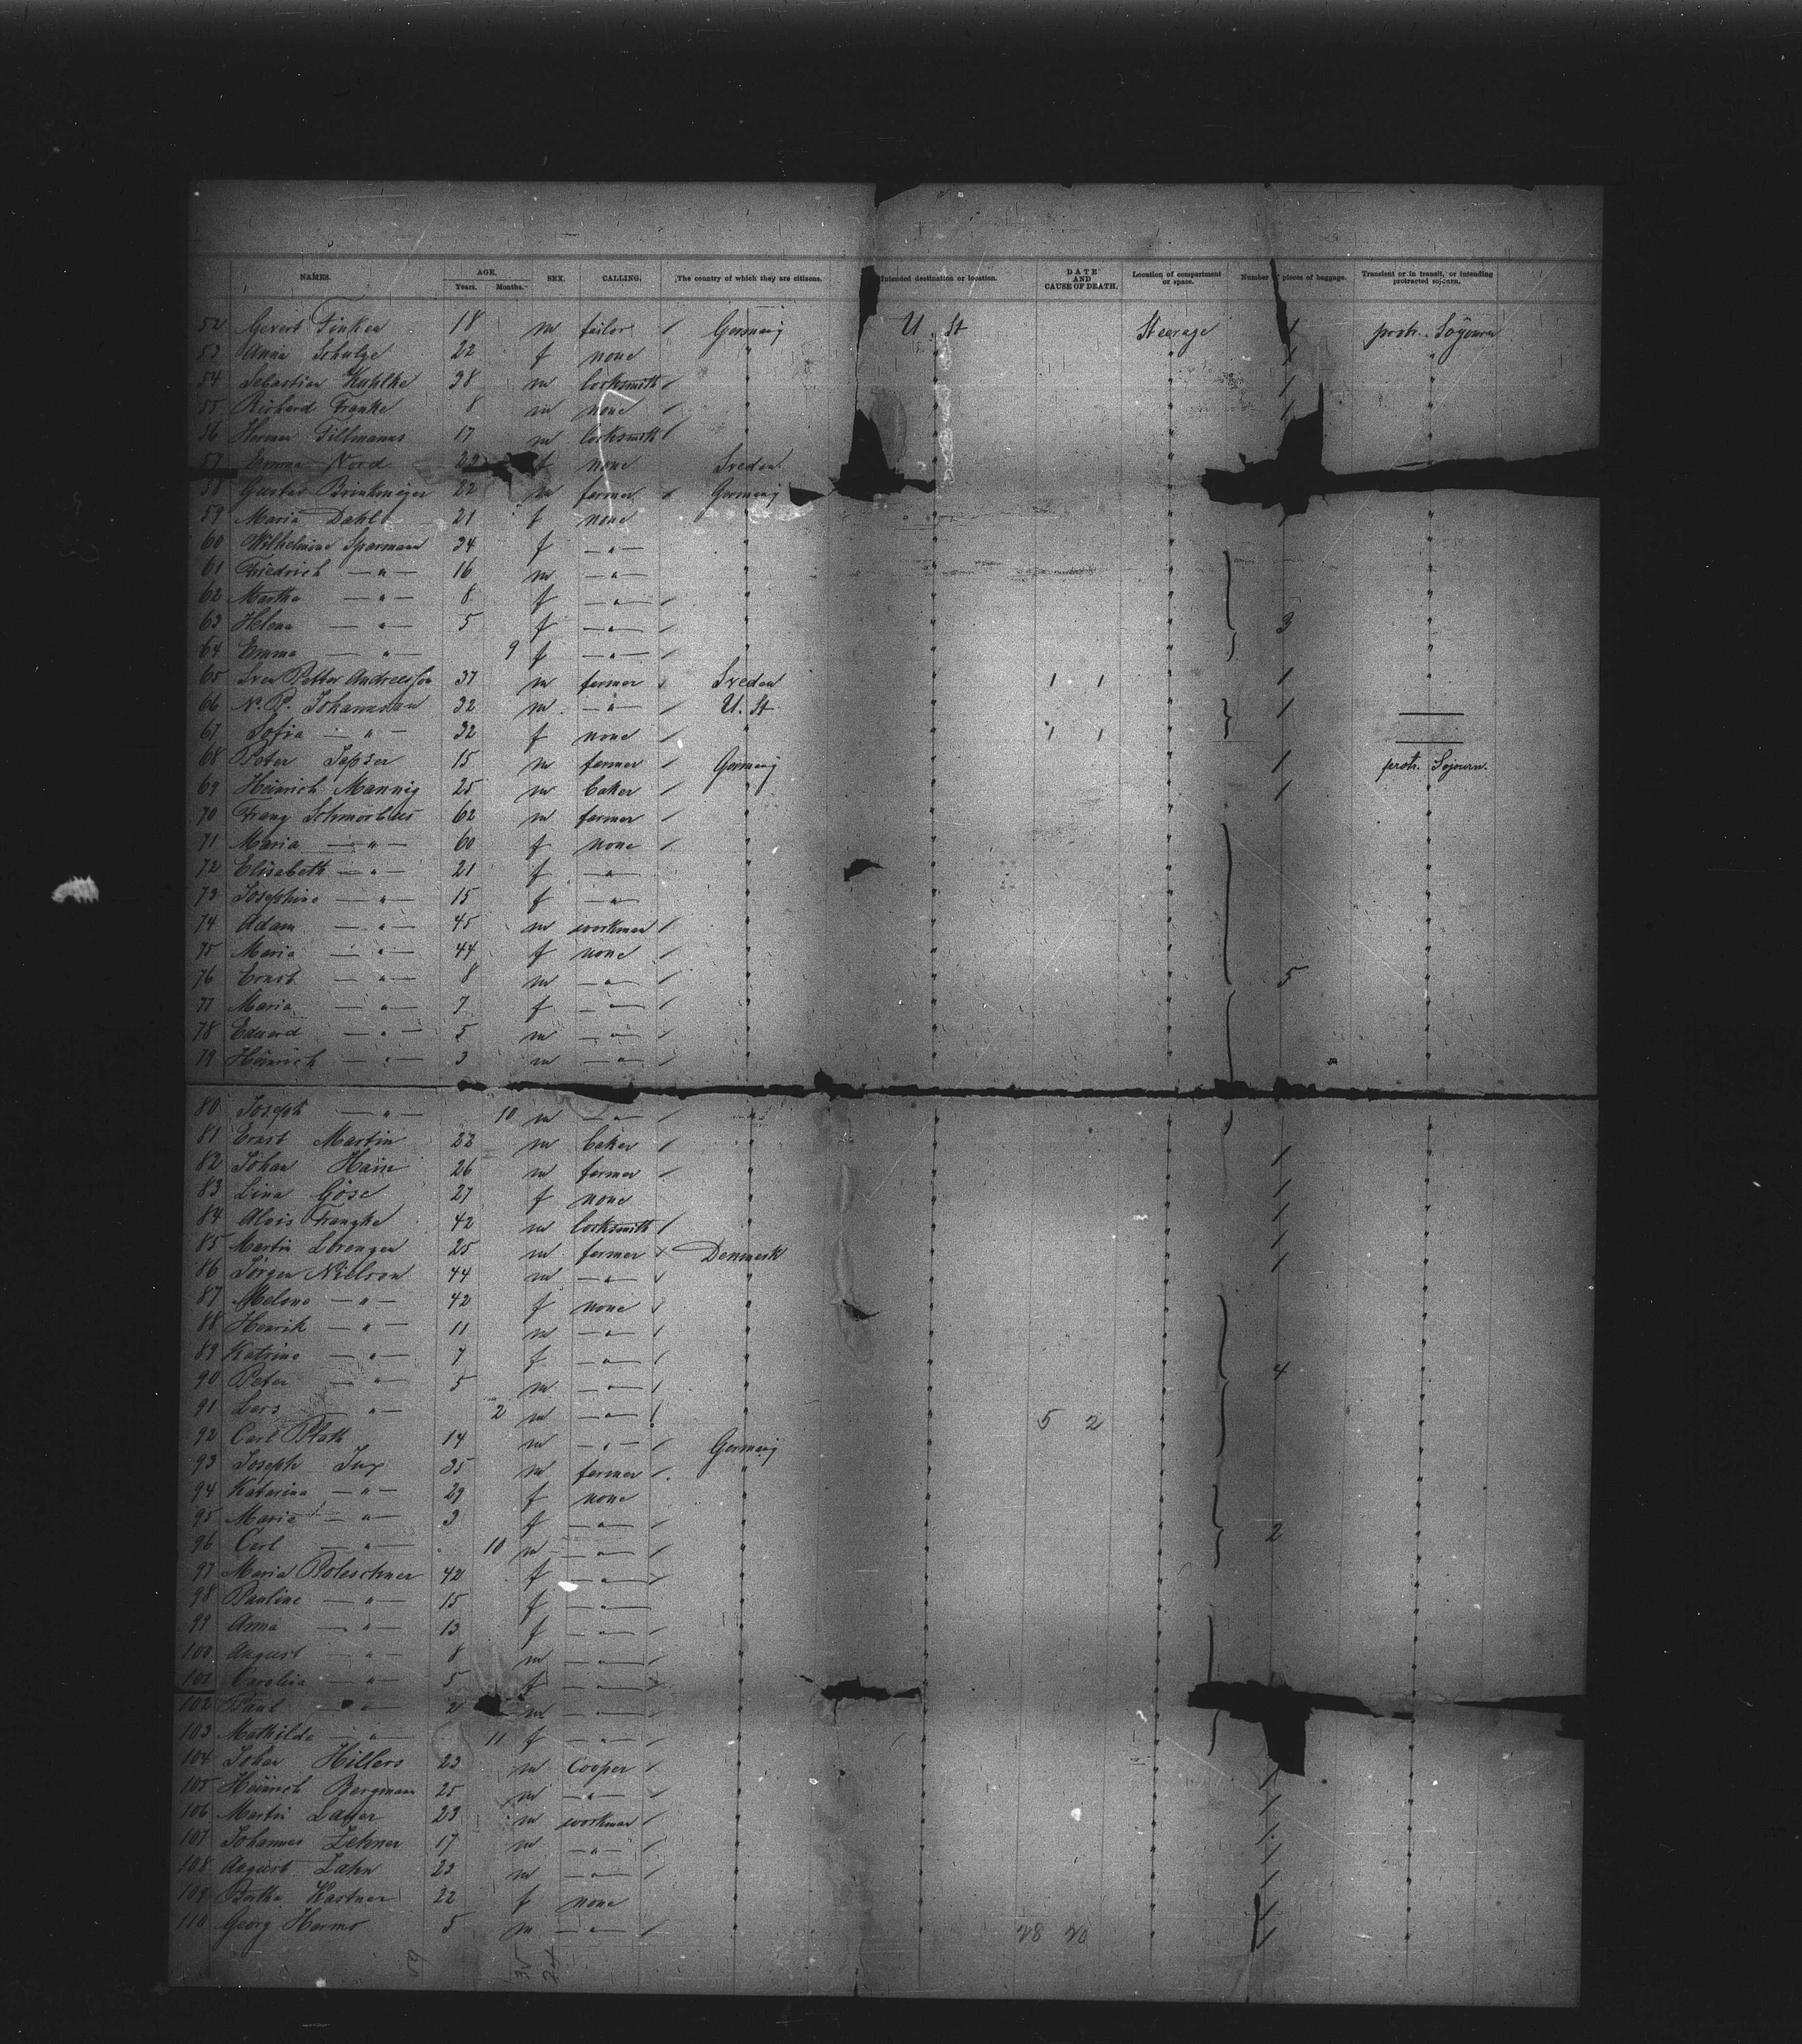 NAMES. AGE. Years. Months. SEX. CALLING. The country of which they are citizens. Intended destination or location. DATE AND CAUSE OF DEATH. Location of compartment or space. Number of pieces of baggage. Transient or in transit, or intending protracted sojourn.
52 Gevert Finken 18 m tailor Germany U. St Steerage 1 protr. Sojourn
53 Anna Schulze 22 f none " " " 1 "
54 Sebastian Kuhlke 38 m locksmith " " " 1 "
55 Richard Franke 8 m none " " " 1 "
56 Herman Tillmanns 17 m locksmith " " " "
57 Emma Nord 22 f none Sveden
58 Gustav Brinkmeyer 22 m farmer Germany
59 Maria Dahl 21 f none " " " "
60 Wilhelmine Sparmann 34 f — " — " " " "
61 Friedrich — " — 16 m — " — " " " "
62 Martha — " — 8 f — " — " " " "
63 Helena — " — 5 f — " — " " " 3 "
64 Emma — " — 9 f — " — " " " "
65 Sven Petter Andreesson 37 m farmer Sveden " 1 1 " 1 "
66 N. P. Johannson 32 m — " — U. St. " " 1 —
67 Sofia — " — 32 f none " " 1 1 " —
68 Peter Jepsen 15 m farmer Germany " " 1 protr. Sojourn.
69 Heinrich Mannig 25 m baker " " " 1 "
70 Franz Schmörbus 62 m farmer " " " "
71 Maria — " — 60 f none " " " "
72 Elisabeth — " — 21 f — " — " " " "
73 Josephine — " — 15 f — " — " " " "
74 Adam — " — 45 m workman " " " "
75 Maria — " — 44 f none " " " "
76 Ernst — " — 8 m — " — " " " 5 "
77 Maria — " — 7 f — " — " " " "
78 Eduard — " — 5 m — " — " " " "
79 Heinrich — " — 3 m — " — " " " "
80 Joseph — " — 10 m — " — " " " "
81 Ernst Martin 22 m baker " " " 1 "
82 Johan Hain 26 m farmer " " " 1 "
83 Lina Göse 27 f none " " " 1 "
84 Alois Frangke 42 m locksmith " " " 1 "
85 Martin Lorenzen 25 m farmer Denmark " " 1 "
86 Jörgen Nielson 44 m — " — " " " "
87 Melone — " — 42 f none " " " "
88 Henrik — " — 11 m — " — " " " "
89 Katrine — " — 7 f — " — " " " 4 "
90 Peter — " — 5 m — " — " " " "
91 Lars — " — 2 m — " — " " 5 2 " "
92 Carl Plath 14 m — " — Germany " " "
93 Joseph Jux 35 m farmer " " " "
94 Katarina — " — 29 f none " " " "
95 Maria — " — 3 f — " — " " " 2 "
96 Carl — " — 10 m — " — " " " "
97 Maria Poleschner 42 f — " — " " " "
98 Pauline — " — 15 f — " — " " " "
99 Anna — " — 13 f — " — " " " "
100 August — " — 8 m — " — " " " "
101 Carolina — " — 5 f — " — " " " "
102 Paul — " — 2 m — " — " " " "
103 Mathilde — " — 11 f — " — " " " "
104 Johan Hillers 23 m Cooper " " " 1 "
105 Heinrich Bergman 25 m — " — " " " 1 "
106 Martin Lager 23 m workman " " " 1 "
107 Johannes Zehner 17 m — " — " " " 1 "
108 August Zahn 23 m — " — " " " 1 "
109 Bertha Kastner 22 f none " " " 1 "
110 Georg Harms 5 m — " — " " 28 20 " 1 "
59 35 24